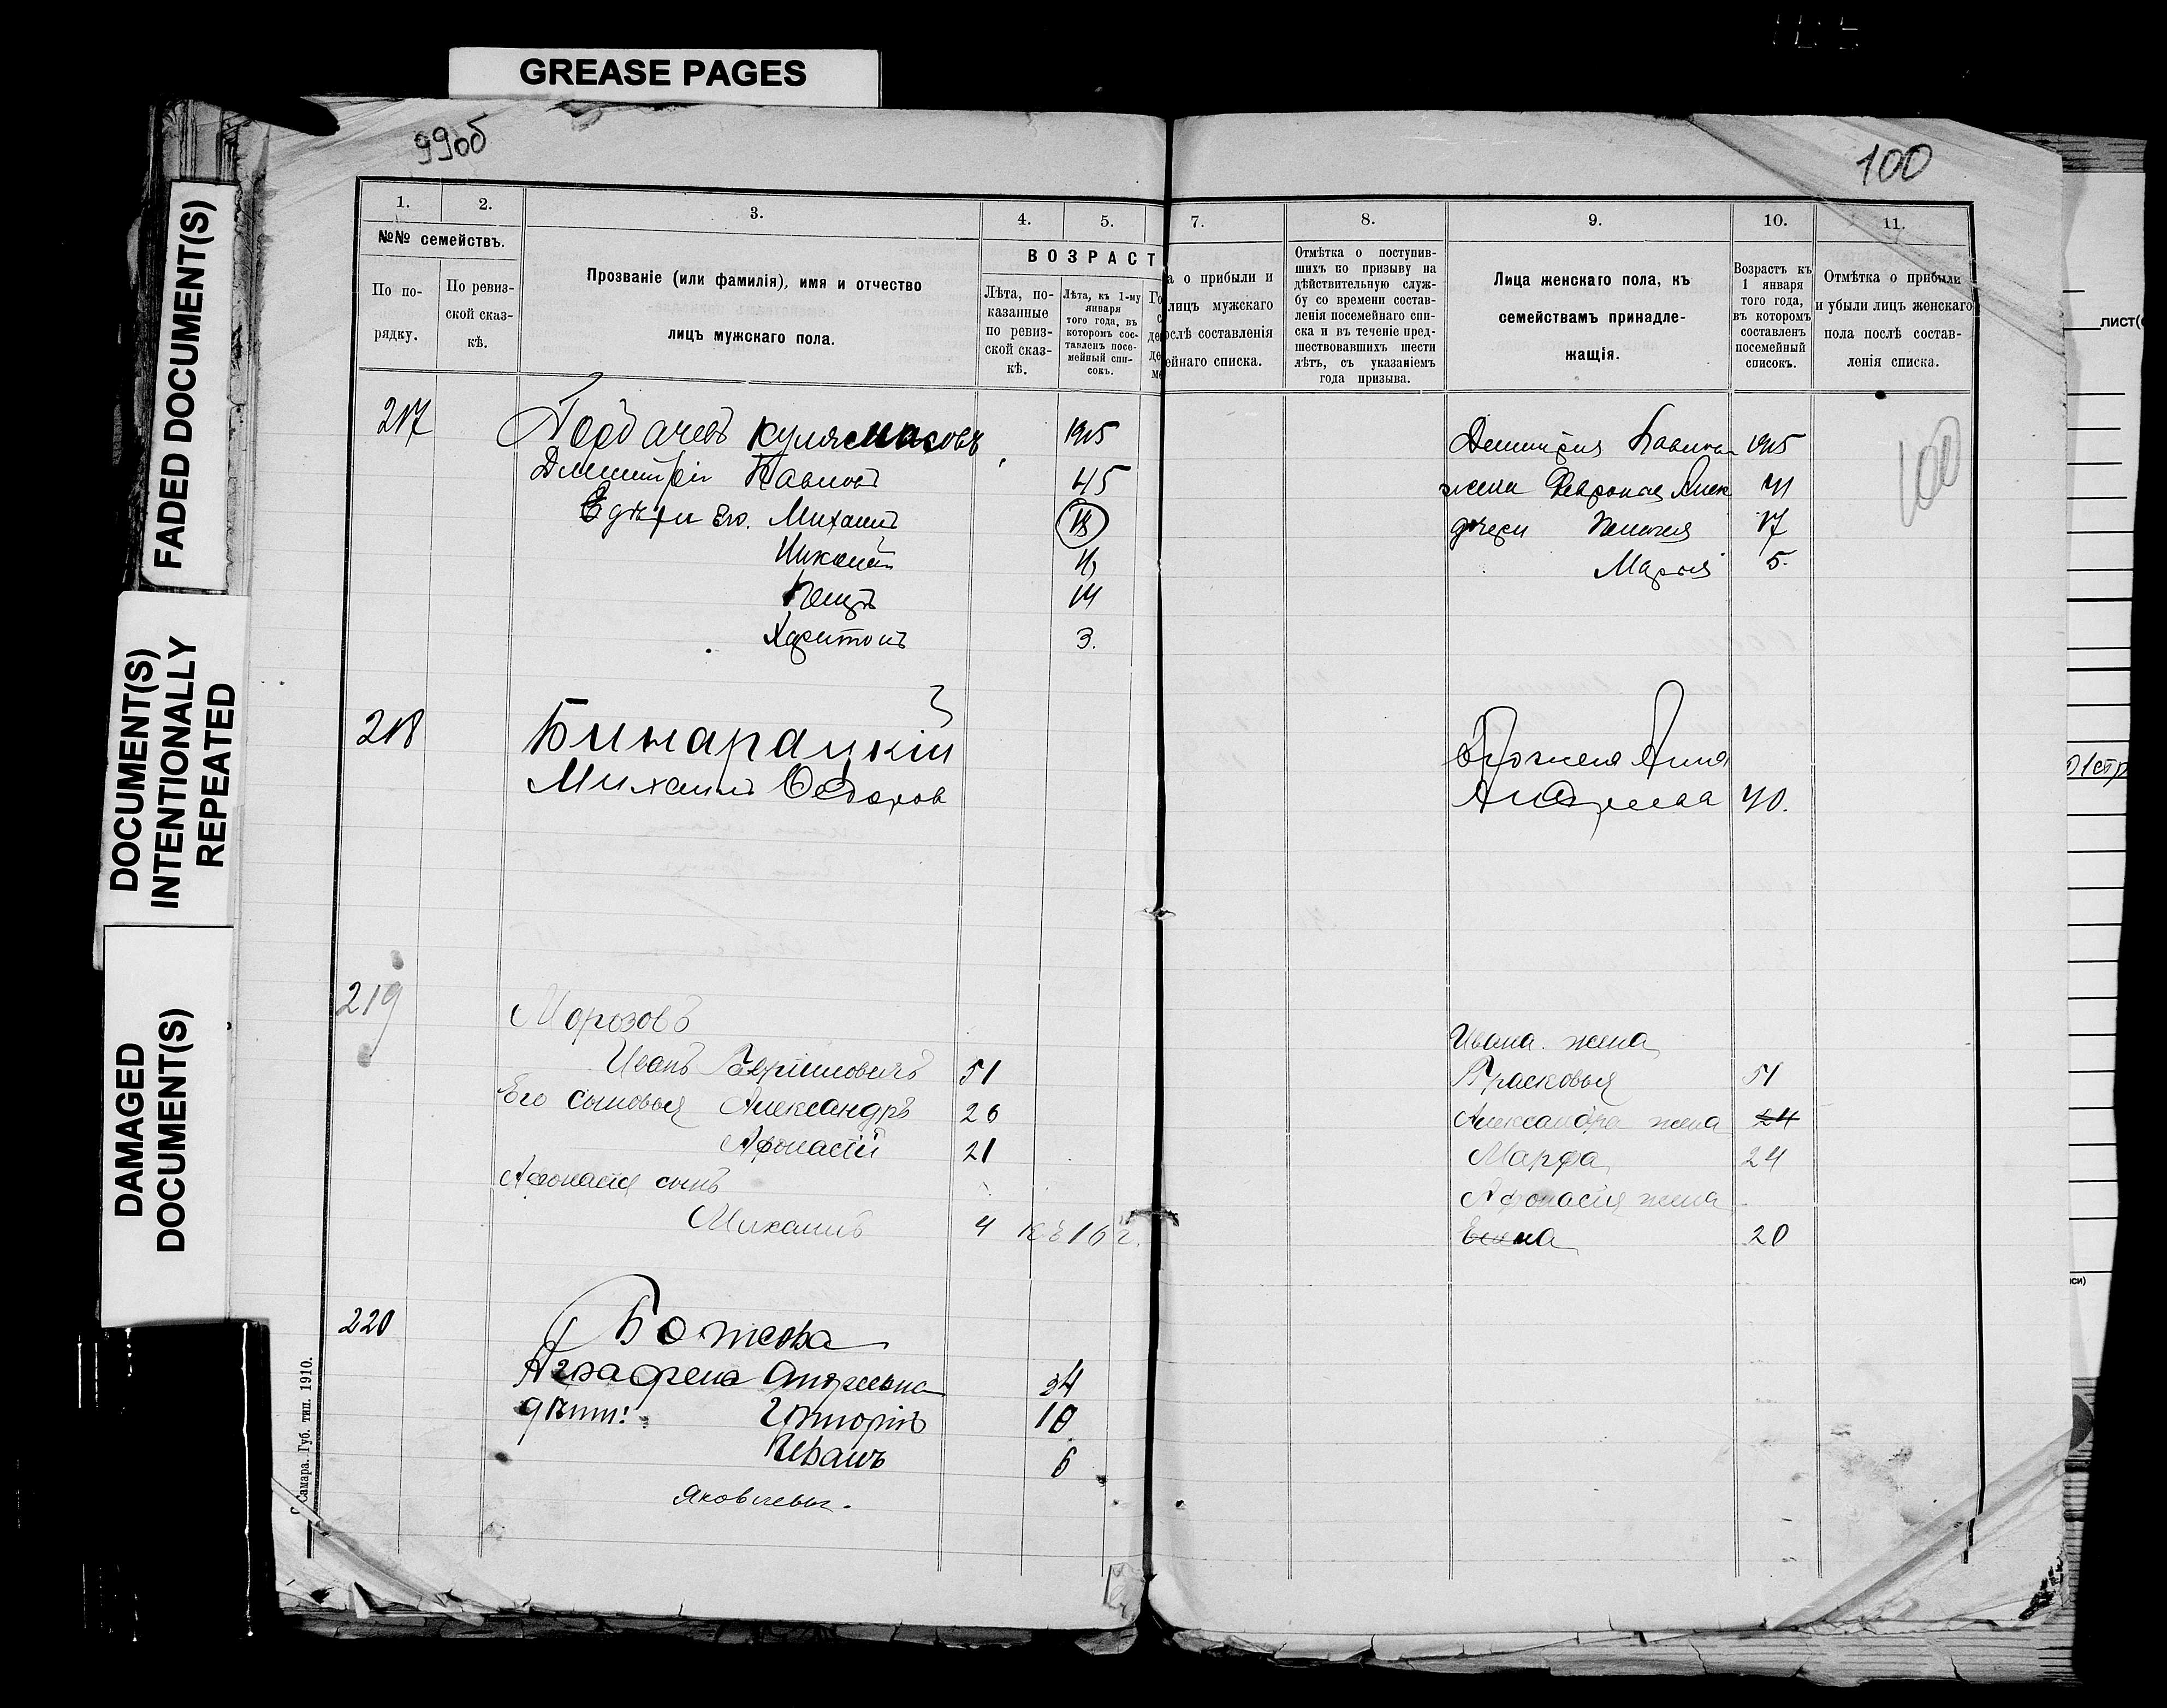 GREASE PAGES
FADED DOCUMENT(S)
DOCUMENT(S)
INTENTIONALLY
REPEATED
DAMAGED
DOCUMENT(S)
99об
100
1. 2. 3. 4. 5. 7. 8. 9. 10. 11.
№№ семействъ.
По по-
рядку.
По ревиз-
ской сказ-
кѣ.
Прозваніе (или фамилія), имя и отчество
лицъ мужскаго пола.
ВОЗРАСТ
Лѣта, по-
казанные
по ревиз-
ской сказ-
кѣ.
Лѣта, къ 1-му
января
того года, въ
которомъ сос-
тавленъ посе-
мейный спи-
сокъ.
а о прибыли и
лицъ мужскаго
ослѣ составленія
ейнаго списка.
Отмѣтка о поступив-
шихъ по призыву на
дѣйствительную служ-
бу со времени состав-
ленія посемейнаго спи-
ска и въ теченіе пред-
шествовавшихъ шести
лѣтъ, съ указаніемъ
года призыва.
Лица женскаго пола, къ
семействамъ принадле-
жащія.
Возрастъ къ
1 января
того года,
въ которомъ
составленъ
посемейный
списокъ.
Отмѣтка о прибыли
и убыли лицъ женскаго
пола послѣ состав-
ленія списка.
217
1915
Дмитрія 1915
Дмитрій Павловъ 45
жена
Его Михаилъ 18
дочери 17
Марія 5.
Петръ 14
Харитонъ 3.
100
218 Бинарацкій
Михаилъ Федоров
Анна
Андреева 40.
219 Морозовъ
Ивана жена
Иванъ 51
Прасковья 51
Его сыновья Александръ 26
Александра жена 24
Афонасій 21
Марфа 24
Афонасія сынъ
Афонасія жена
Михаилъ 4 къ 16 г.
Елена 20
220 Божева
Аграфена Андреевна 34
дѣти: Григорій 10
Иванъ 6
Яковлевы.
Самара. Губ. тип. 1910.
ЛИСТ(